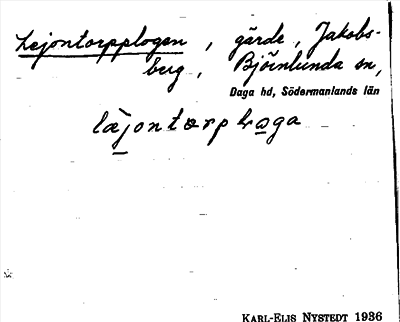 Lejontorpplogen, gärde, Jakobs-
berg, Björnlunda sn,
Daga hd, Södermanlands län
KARL-ELIS NYSTEDT 1936